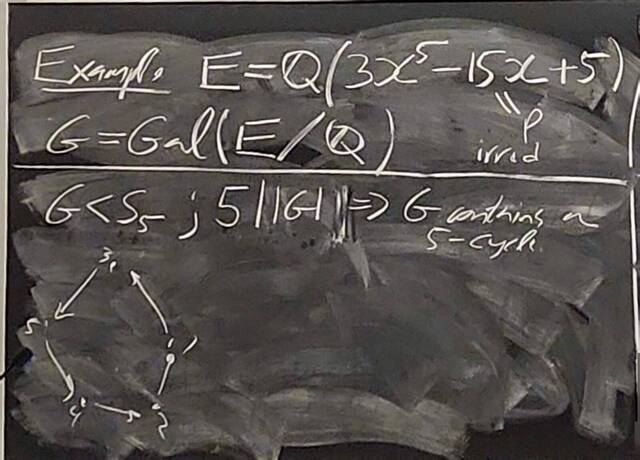 Example E = Q(3x⁵ - 15x + 5)
G = Gal(E/Q)
p
irred
G < S₅ ; 5 | |G| ⇒ G contains a
5-cycle.
3
5
1
4
2